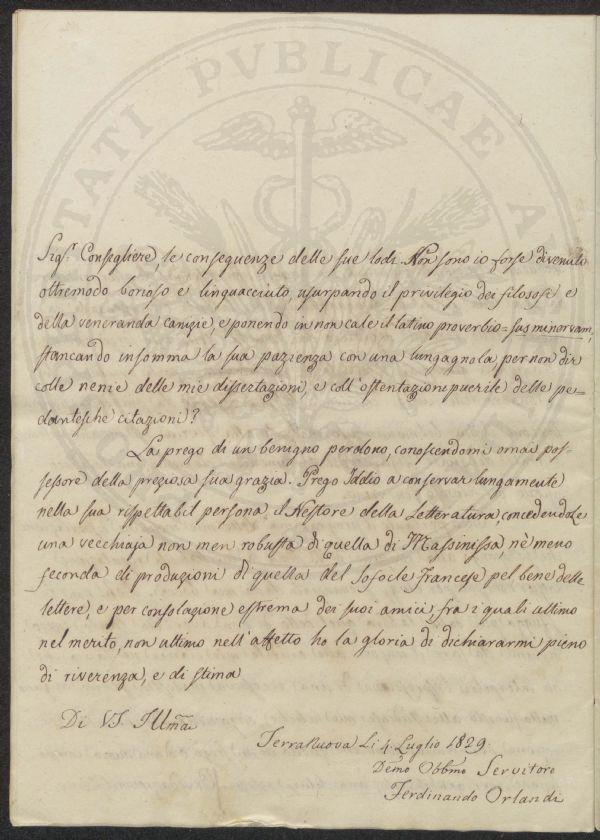 VTILITATI PVBLICAE
Sigr. Consigliere, le conseguenze delle sue lodi. Non sono io forse divenuto
oltremodo borioso e linguacciuto, usurpando il privilegio dei filosofi e
della veneranda canizie, e ponendo in non cale il latino proverbio = sus minervam,
stancando insomma la sua pazienza con una lungagnola, per non dir
colle nenie delle mie dissertazioni, e coll'ostentazion puerile delle pe=
dantesche citazioni?
La prego di un benigno perdono, conoscendomi omai pos=
sessore della preziosa sua grazia. Prego Iddio a conservar lungamente
nella sua rispettabil persona, il Nestore della Letteratura, concedendole
una vecchiaja non men robusta di quella di Massinissa, nè meno
feconda di produzioni di quella del Sofocle Francese pel bene delle
lettere, e per consolazione estrema dei suoi amici, fra i quali ultimo
nel merito, non ultimo nell'affetto ho la gloria di dichiararmi pieno
di riverenza, e di stima
Di VS. Illma
TerraNuova Li 4. Luglio 1829.
Devmo Obbmo Servitore
Ferdinando Orlandi